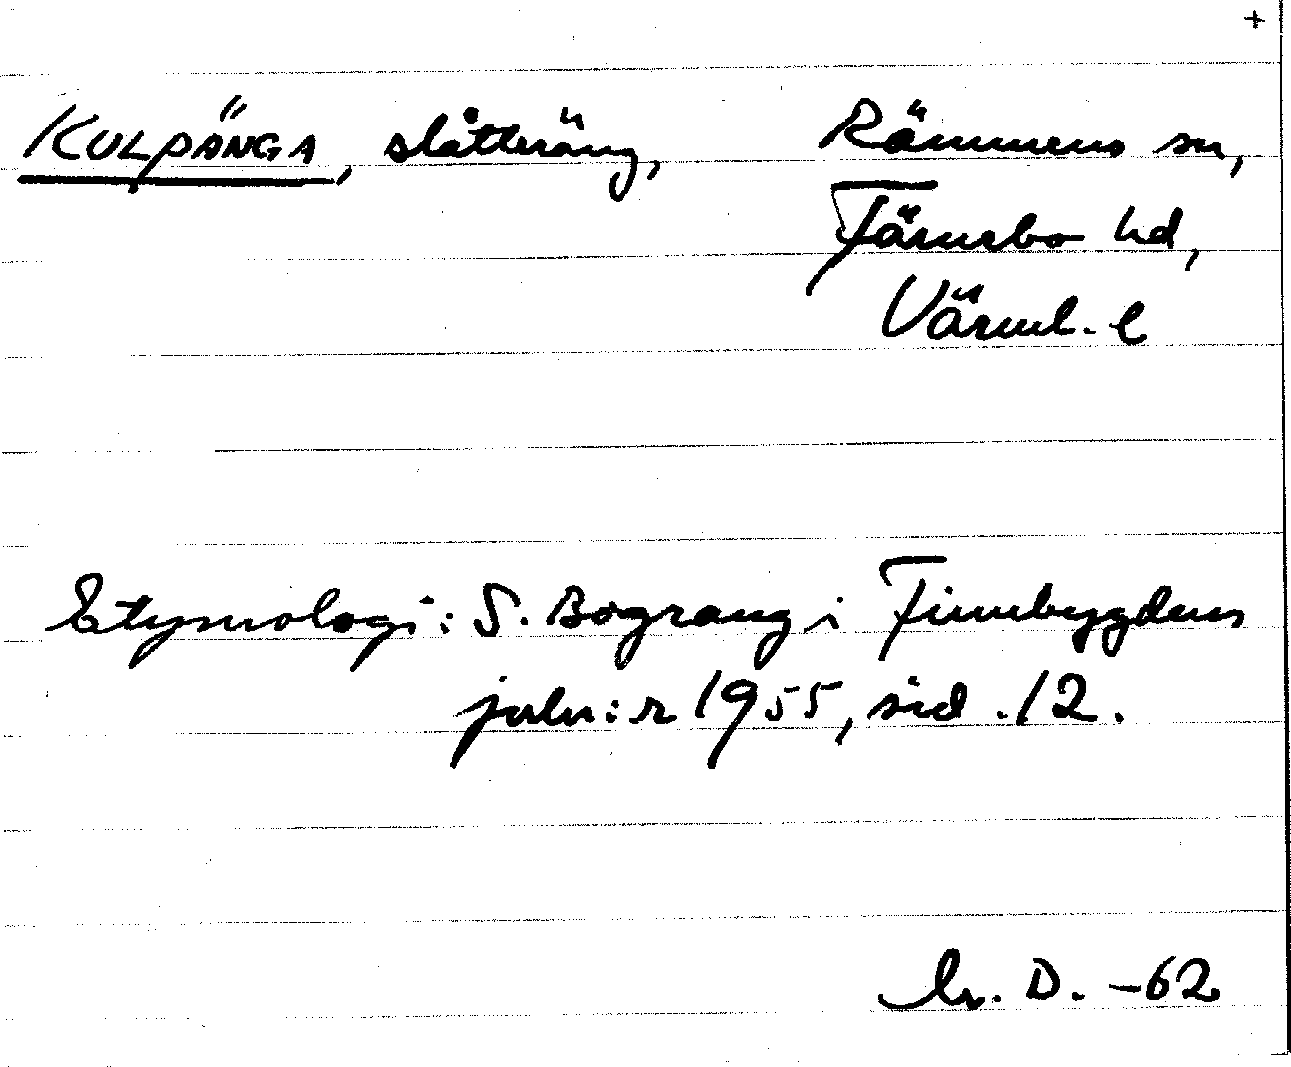 +
KULPÄNGA, slåtteräng, Rämmens sn,
Färnebo hd,
Värml. l
Etymologi: S. Bograng i Finnbygden
julnr 1955, sid. 12.
D. -62